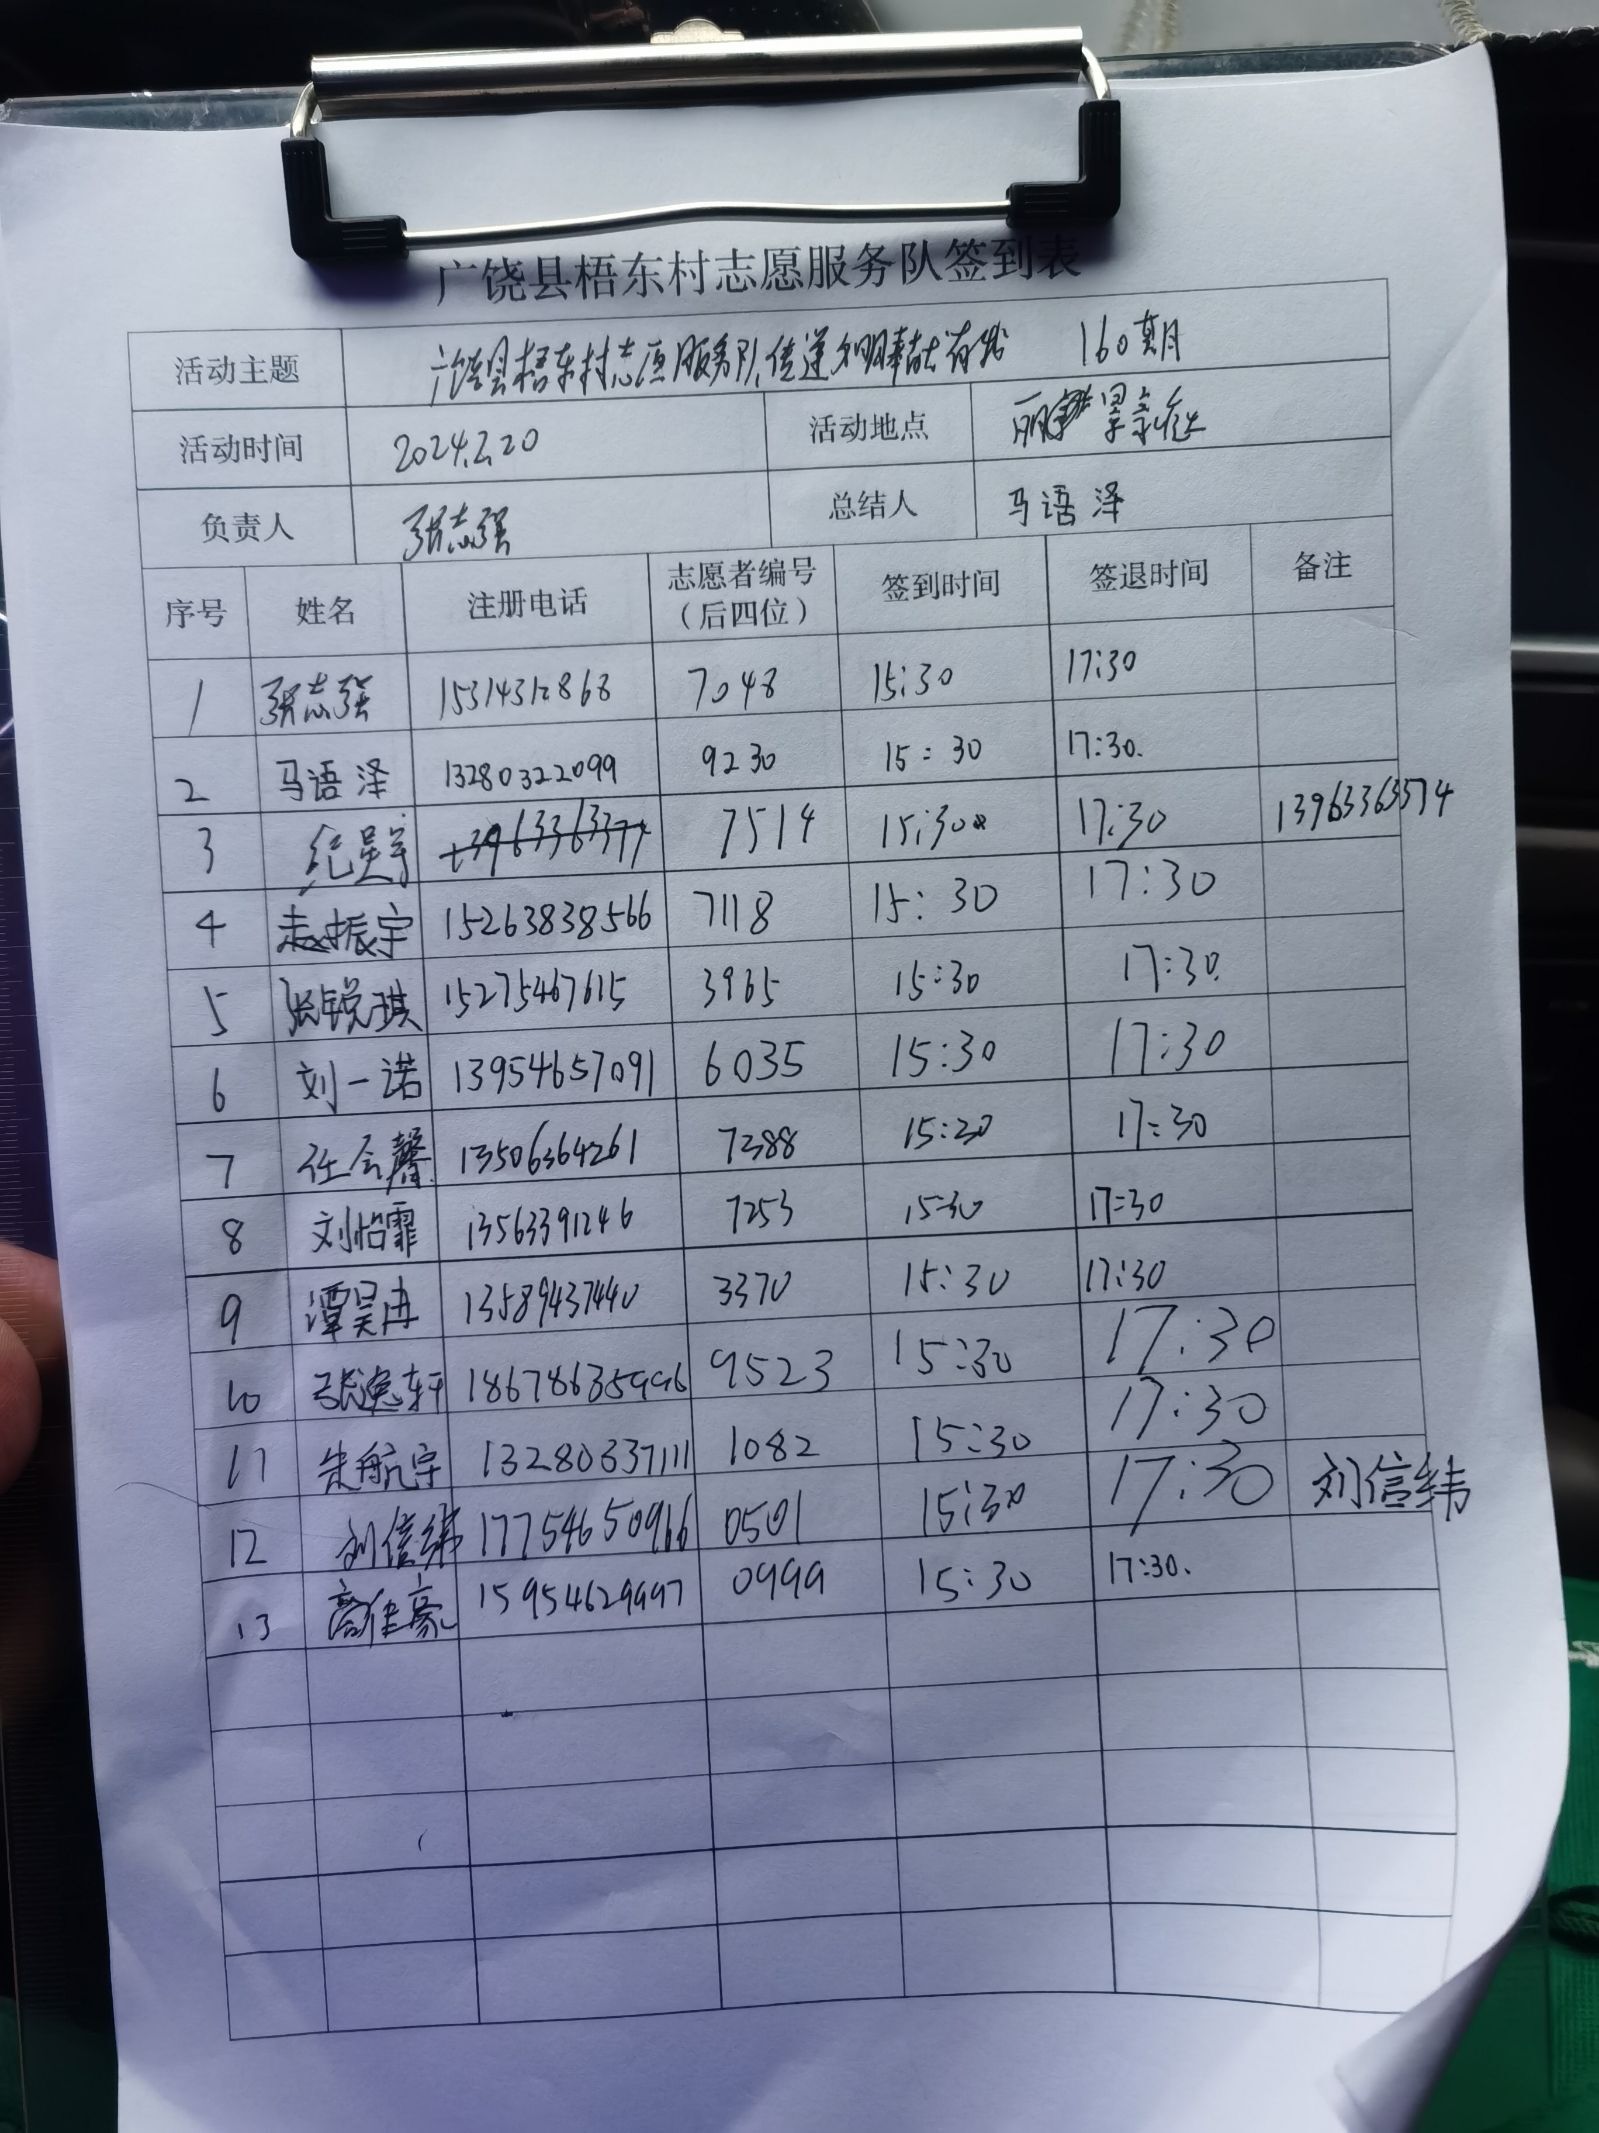 广饶县梧东村志愿服务队签到表
活动主题 广饶县梧东村志愿服务队传递文明奉献有我 160期
活动时间 2024.2.20 活动地点
负责人 张志强 总结人 马语泽
序号 姓名 注册电话 志愿者编号（后四位） 签到时间 签退时间 备注
1 张志强 7048 15:30 17:30
2 马语泽 13280322099 9230 15:30 17:30.
3 7514 15:30 17:30 13963363574
4 赵振宇 15263838566 7118 15:30 17:30
5 张锐琪 15275467615 3965 15:30 17:30
6 刘一诺 13954657091 6035 15:30 17:30
7 任会馨 13506364261 7388 15:30 17:30
8 刘怡霏 13563391246 7253 15:30 17:30
9 谭昊冉 13589437440 3370 15:30 17:30
10 张逸轩 18678635996 9523 15:30 17:30
11 朱航宇 13280337111 1082 15:30 17:30
12 刘信纬 17754650966 0501 15:30 17:30 刘信纬
13 高佳豪 15954629997 0999 15:30 17:30.